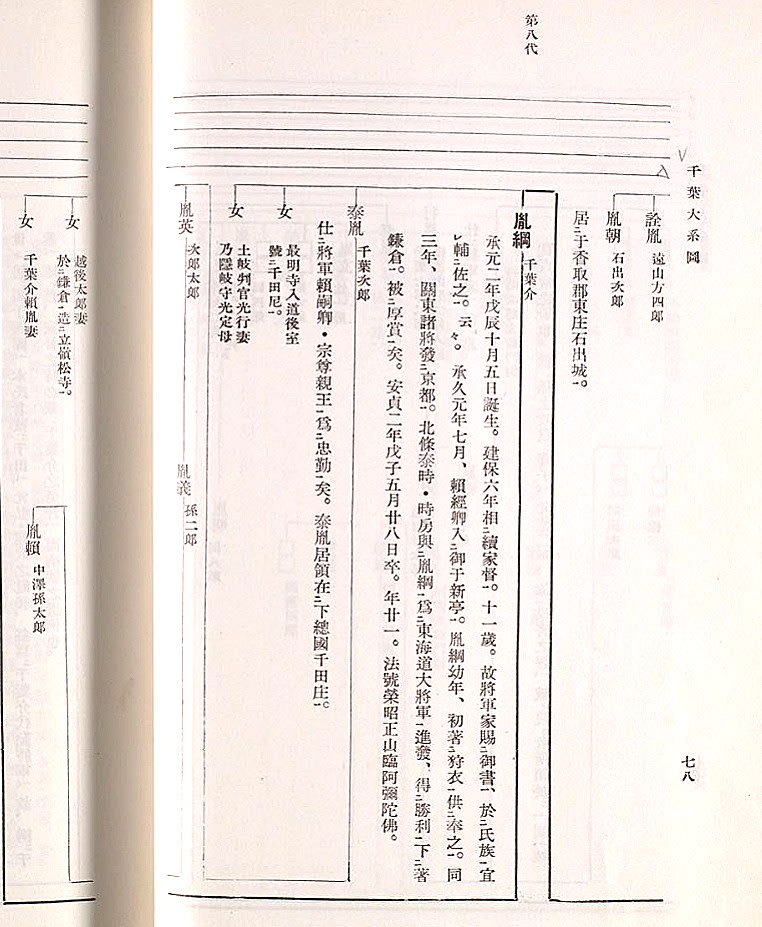 千葉大系圖
七八
第八代
詮胤 遠山方四郎
胤朝 石出次郎
居㆓于香取郡東庄石出城㆒。
胤綱 千葉介
承元二年戊辰十月五日誕生。建保六年相㆓續家督㆒。十一歲。故將軍家賜㆓御書㆒、於㆓氏族㆒宜
㆑輔㆓佐之㆒。云々。承久元年七月、賴經卿入㆓御于新亭㆒。胤綱幼年、初著㆓狩衣㆒供㆓奉之㆒。同
三年、關東諸將發㆓京都㆒。北條泰時・時房與㆓胤綱㆒爲㆓東海道大將軍㆒進發、得㆓勝利㆒下㆓著
鎌倉㆒。被㆓厚賞㆒矣。安貞二年戊子五月廿八日卒。年廿一。法號榮昭正山臨阿彌陀佛。
泰胤 千葉次郎
仕㆓將軍賴嗣卿・宗尊親王㆒爲㆓忠勤㆒矣。泰胤居領在㆓下總國千田庄㆒。
女 最明寺入道後室
號㆓千田尼㆒。
女 土岐判官光行妻
乃隱岐守光定母
胤英 次郎太郎
胤義 孫二郎
女 越後太郎妻
於㆓鎌倉㆒造㆓立嶺松寺㆒。
女 千葉介賴胤妻
胤賴 中澤孫太郎